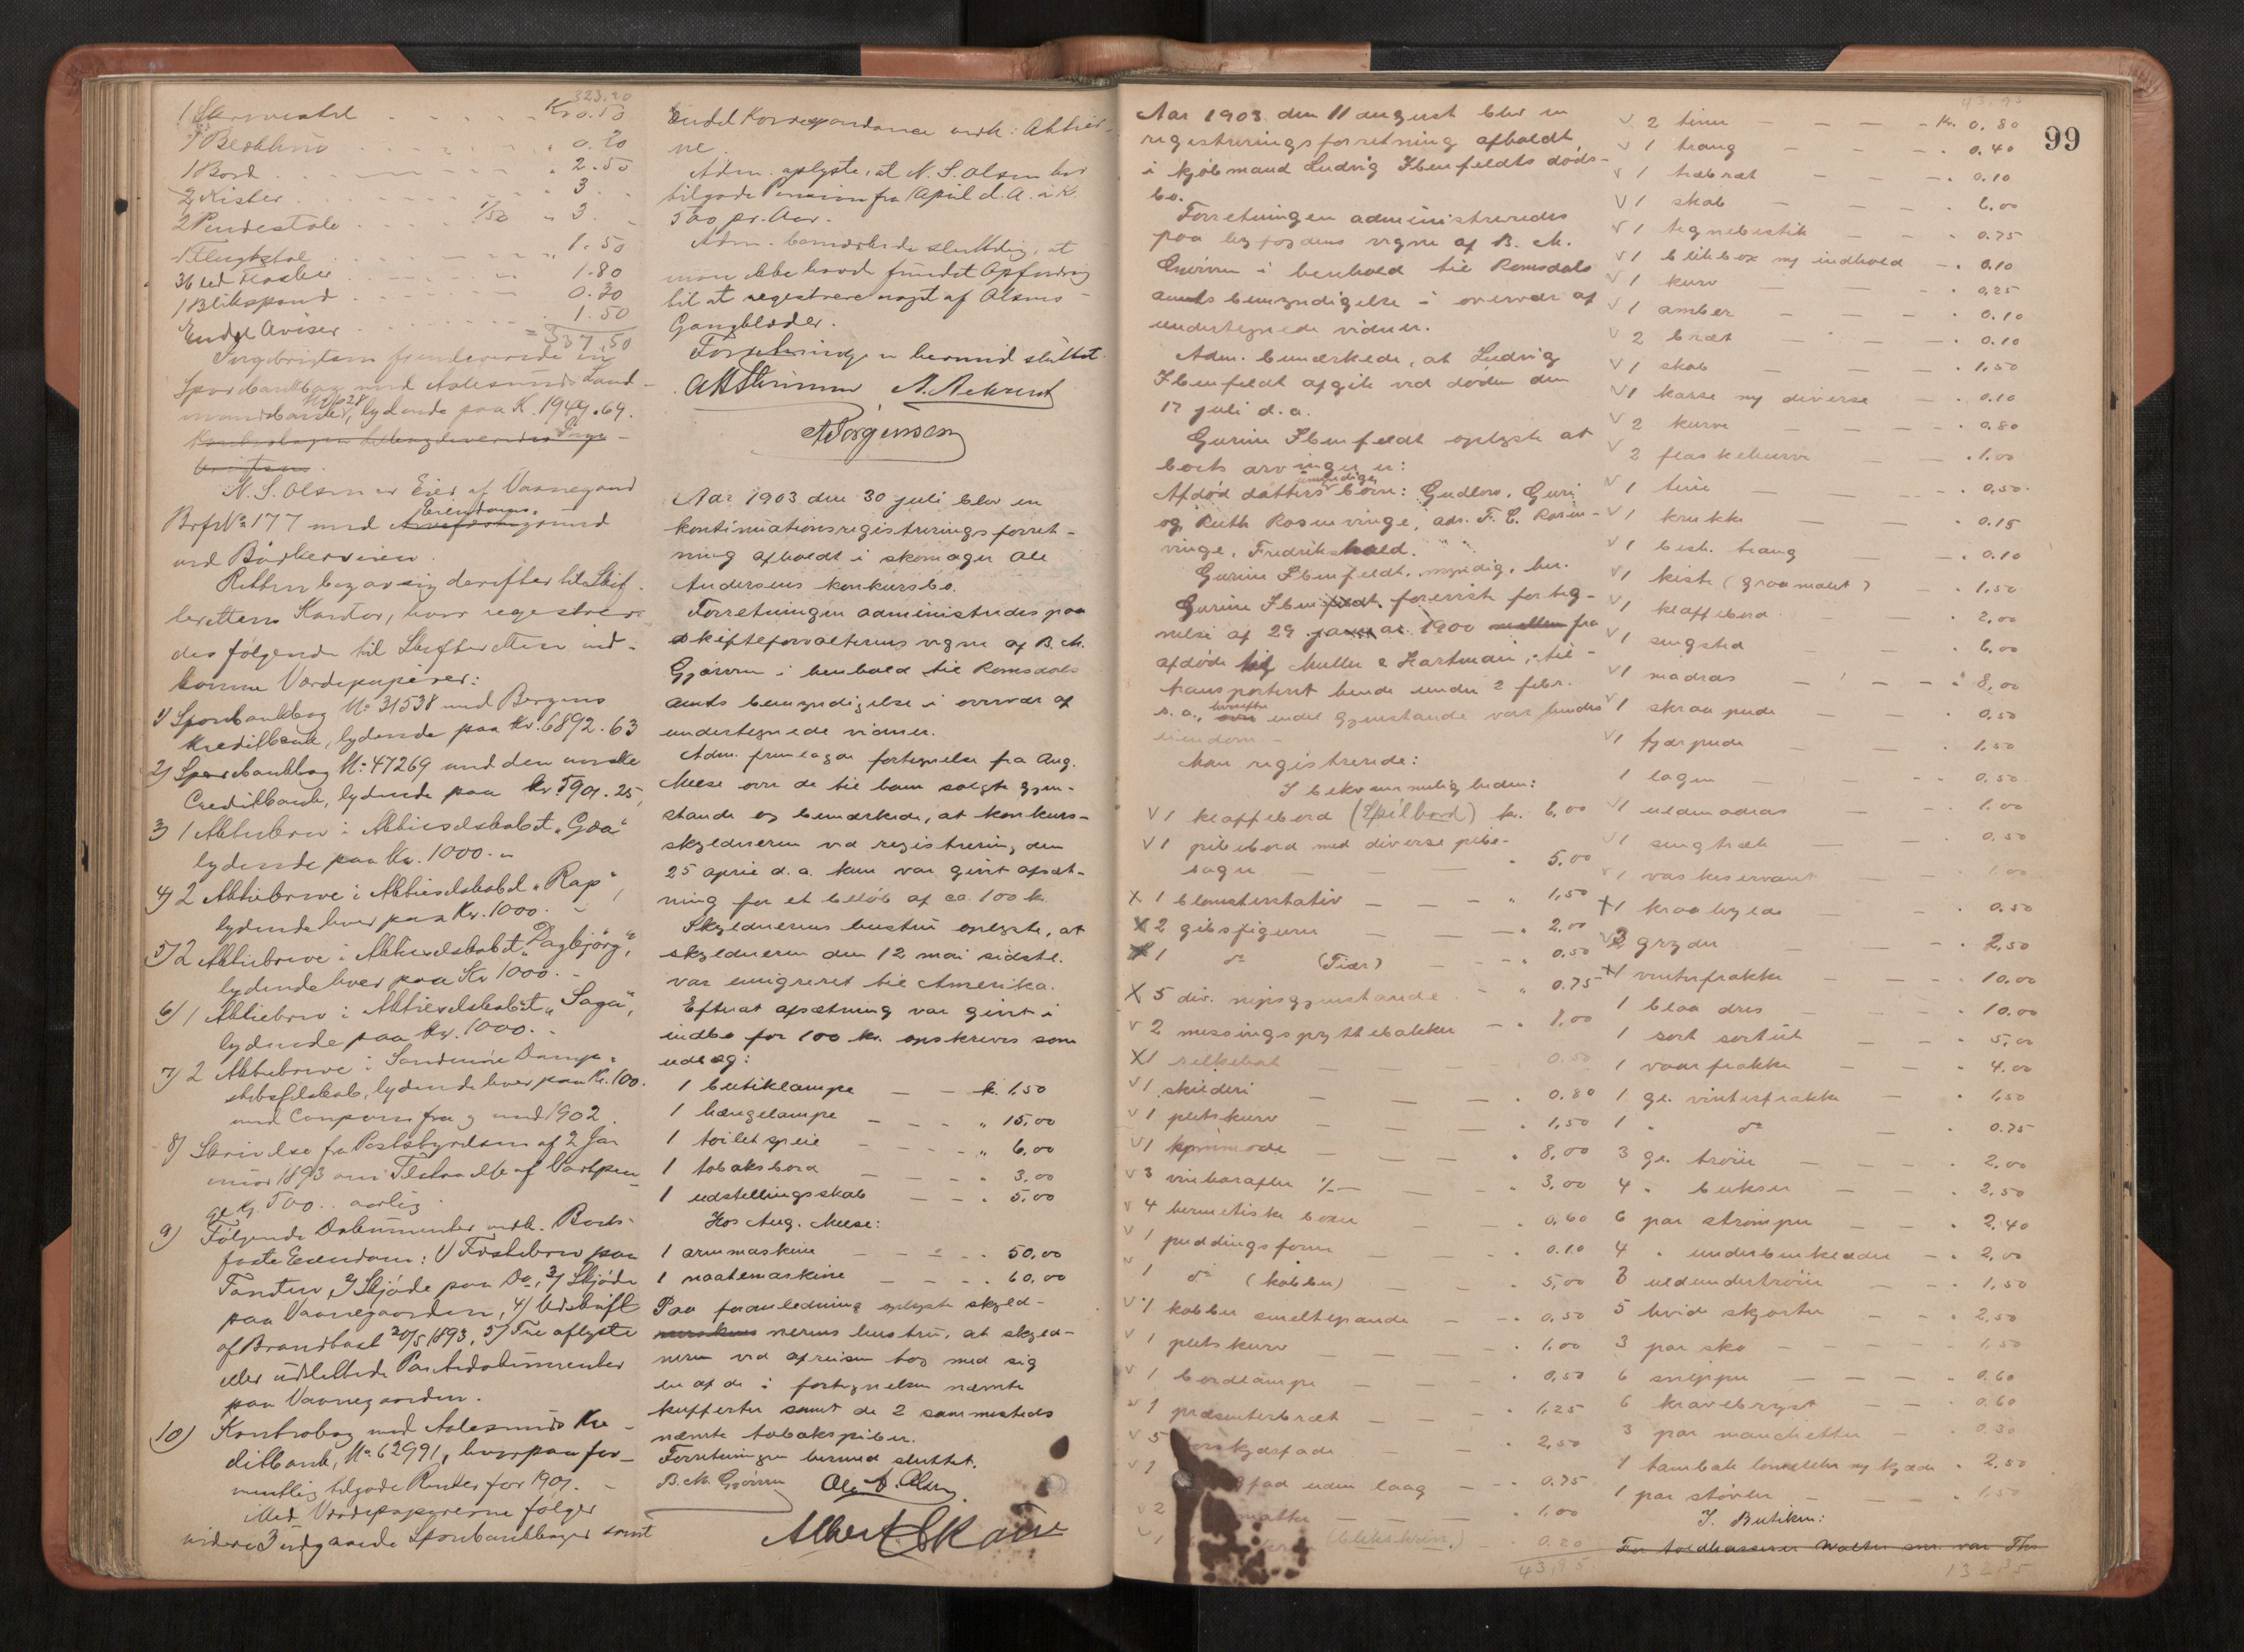 323.20
1 Skrivestol . . . . Kr 0.50
1 Blækhus . . . . " 0.20
1 Bord . . . . " 2.50
2 Kister . . . . " 3. -
2 Pindestole . . . 1/50 " 3. -
1 Flugtstol . . . . " 1.50
36 led Flasker . . . . 1.80
1 Blikspand . . . . 0.30
Endel Aviser . . . . 1.50
= 337,50
Sparebankbog med Aalesunds Land-
mandsbank, lydende paa K. 1949.69.
N. S. Olsen er Eier af Vaanegaard
Brf № 177 med Eiendomsgrund
ved Bödkerveien.
Retten begav sig derefter til Skif-
terettens Kontor, hvor registrer-
des følgende til Skifteretten ind-
komne Værdipapirer:
1) Sparebankbog № 31538 med Bergens
Kreditbank, lydende paa Kr. 6892.63
2) Sparebankbog № 47269 med den norske
Creditbank, lydende paa Kr. 5901.25,
3) 1 Aktiebrev i Aktieselskabet "Goa"
lydende paa Kr. 1000. -
4) 2 Aktiebreve i Aktieselskabet "Rap",
lydende hver paa Kr. 1000. -
5) 2 Aktiebreve i Aktieselskabet "Dagbjörg",
lydende hver paa Kr 1000. -
6) 1 Aktiebrev i Aktieselskabet "Saga",
lydende paa Kr. 1000. -
7) 2 Aktiebreve i Söndmöre Damp-
skibsselskab, lydende hver paa Kr. 100.
med Coupons fra og med 1902.
8) Skrivelse fra Poststyrelsen af 2 Jan
uar 1893 om Tilstaaelse af Vartpen
ge Kr. 500.. aarlig.
9) Følgende Dokumenter vedk. Boets
faste Eiendom: 1) Festebrev paa
Tomten, 2) Skjöde paa Do, 3) Skjöde
paa Vaanegaarden, 4) Udskrift
af Brandtaxt 20/5 1893, 5) Tre aflyste
eller udslettede Pantedokumenter
paa Vaanegaarden.
10) Kontrabog med Aalesunds Kre-
ditbank, № 62991, hvorpaa for-
mentlig tilgode Renter for 1901. -
Med Værdipapirerne følger
videre 3 udgaaede Sparebankbøger samt
Endel Korrespondance vedk: Aktier-
ne.
Adm. oplyste, at N. S. Olsen har
tilgode Pension fra 1 April d. A. à K.
500 pr. Aar.
Adm. bemærkede sluttelig, at
man ikke havde fundet Opfordring
til at registrere noget af Olsens
Gangklæder.
Forretningen hermed sluttet.
A. Jörgensen
Aar 1903 den 30 juli blev en
kontinuationsregistreringsforret-
ning afholdt i skomager Ole
Andersens konkursbo.
Forretningen administredes paa
skifteforvalterens vegne af B. M.
Gjörven i henhold til Romsdals
amts bemyndigelse i overvær af
undertegnede vidner.
Adm. fremlagde fortegnelse fra Aug.
Meese over de til ham solgte gjen-
stande og bemærkede, at konkurs-
skyldneren ved registrering den
25 april d. a. kun var givet afsæt-
ning for et beløb af ca. 100 kr.
Skyldnerens hustru oplyste, at
skyldneren den 12 mai sidstl.
var emigreret til Amerika.
Efterat afsætning var givet i
indbo for 100 kr. opskreves som
udlæg:
1 butiklampe — — kr. 1,50
1 hængelampe — — " 15,00
1 toiletspeil — — " 6,00
1 tobaksbord — — " 3,00
1 udstillingsskab — — " 5,00
Hos Aug. Meese:
1 armmaskine — — " 50,00
1 naatlemaskine — — " 60,00
Paa foranledning oplyste skyld-
nerens hustru, at skyld-
neren ved afreisen tog med sig
en af de i fortegnelsen nævnte
kufferter samt de 2 sammesteds
nævnte tobakspiber.
Forretningen hermed sluttet.
B. M. Gjörven
99
Aar 1903 den 11 august blev en
registreringsforretning afholdt
i kjøbmand Ludvig Ibenfeldts døds-
bo.
Forretningen administreredes
paa byfogdens vegne af B. M.
Gjörven i henhold til Romsdals
amts bemyndigelse i overvær af
undertegnede vidner.
Adm. bemærkede, at Ludvig
Ibenfeldt afgik ved døden den
17 juli d. a.
Gurine Ibenfeldt oplyste at
boets arvinger er:
Afdød datters umyndige børn: Gudlov, Guri
og Ruth Rosenvinge, adr. F. C. Rosen-
vinge, Fredrikshald.
Gurine Ibenfeldt, myndig, her.
Gurine Ibenfeldt foreviste forteg-
nelse af 29 januar 1900 fra
afdøde til Muller & Hartman, til-
transporteret hende under 2 febr.
s. a., hvorefter endel gjenstande var hendes
eiendom. -
Man registrerede:
I bekvemmeligheden:
V 1 klaffebord (Spilbord) kr. 6,00
V 1 pibebord med diverse pibe-
sager — " 5,00
X 1 blomsterstativ — — " 1,50
X 2 gibsfigurer — — " 2,00
X 1 do (Tiær) — — " 0,50
X 5 div. nipsgjenstande — " 0,75
V 2 messingspyttebakker — " 1,00
X 1 — 0,50
V 1 skilderi — — 0,80
V 1 pletskurv — — " 1,50
V 1 kommode — — " 8,00
V 3 vinkarafler — — " 3,00
V 4 hermetiske boxer — — " 0,60
V 1 puddingsform — — " 0.10
1 do (kobber) — — " 5,00
V 1 kobber smeltepande — — " 0,50
V 1 pletskurv — — " 1,00
V 1 bordlampe — — " 0,50
V 1 præsenterbræt — — " 1,25
V 5 — " 2,50
V 1 fad uden laag — " 0.75
V 2 matter — " 1,00
V 1 (blikskrin.) — " 0,20
43,95
43,95
V 2 tiner — — — Kr. 0.80
V 1 traug — — " 0.40
V 1 træbræt — — " 0.10
V 1 skab — — " 6.00
V 1 tegnebestik — — " 0.75
V 1 blikbox m/ indhold — " 0.10
V 1 kurv — — " 0,25
V 1 amber — — " 0.10
V 2 bræt — — " 0.10
V 1 skab — — " 1,50
V 1 kasse m/ diverse — " 0.10
V 2 kurve — — " 0.80
V 2 flaskekurve — — " 1.00
V 1 tine — — " 0,50
V 1 krukke — — " 0.15
V 1 besk. traug — — " 0.10
V 1 kiste (graamalet) — " 1,50
V 1 klaffebord — — " 2,00
V 1 sengsted — — " 6.00
V 1 madras — — " 8,00
V 1 skraapude — — " 0,50
V 1 fjærpude — — " 1,50
1 lagen — — " 0,50
V 1 uldmadras — — " 1.00
V 1 sengtræk — — 0,50
V 1 vaskeservant — — 1.00
X 1 kraahylde — — " 0.50
V 3 gryder — — " 2,50
X 1 vinterfrakke — — " 10.00
1 blaa dres — — " 10.00
1 sort sortüt — — " 5,00
1 vaarfrakke — — " 4.00
1 gl. vinterfrakke — " 1,50
1 " do — " 0.75
3 gl. trøier — — " 2.00
4 " bukser — — " 2,50
6 par strømper — — " 2,40
4 " underbenklæder — " 2,00
3 uldundertrøier — — " 1,50
5 hvide skjorter — — " 2,50
3 par sko — — 1,50
6 snipper — — " 0.60
6 kravebryst — — " 0.60
3 par manchetter — " 0.30
1 tambak lommeuhr m/ kjæde " 2,50
1 par støvler — — " 1,50
I. Butiken:
132,35